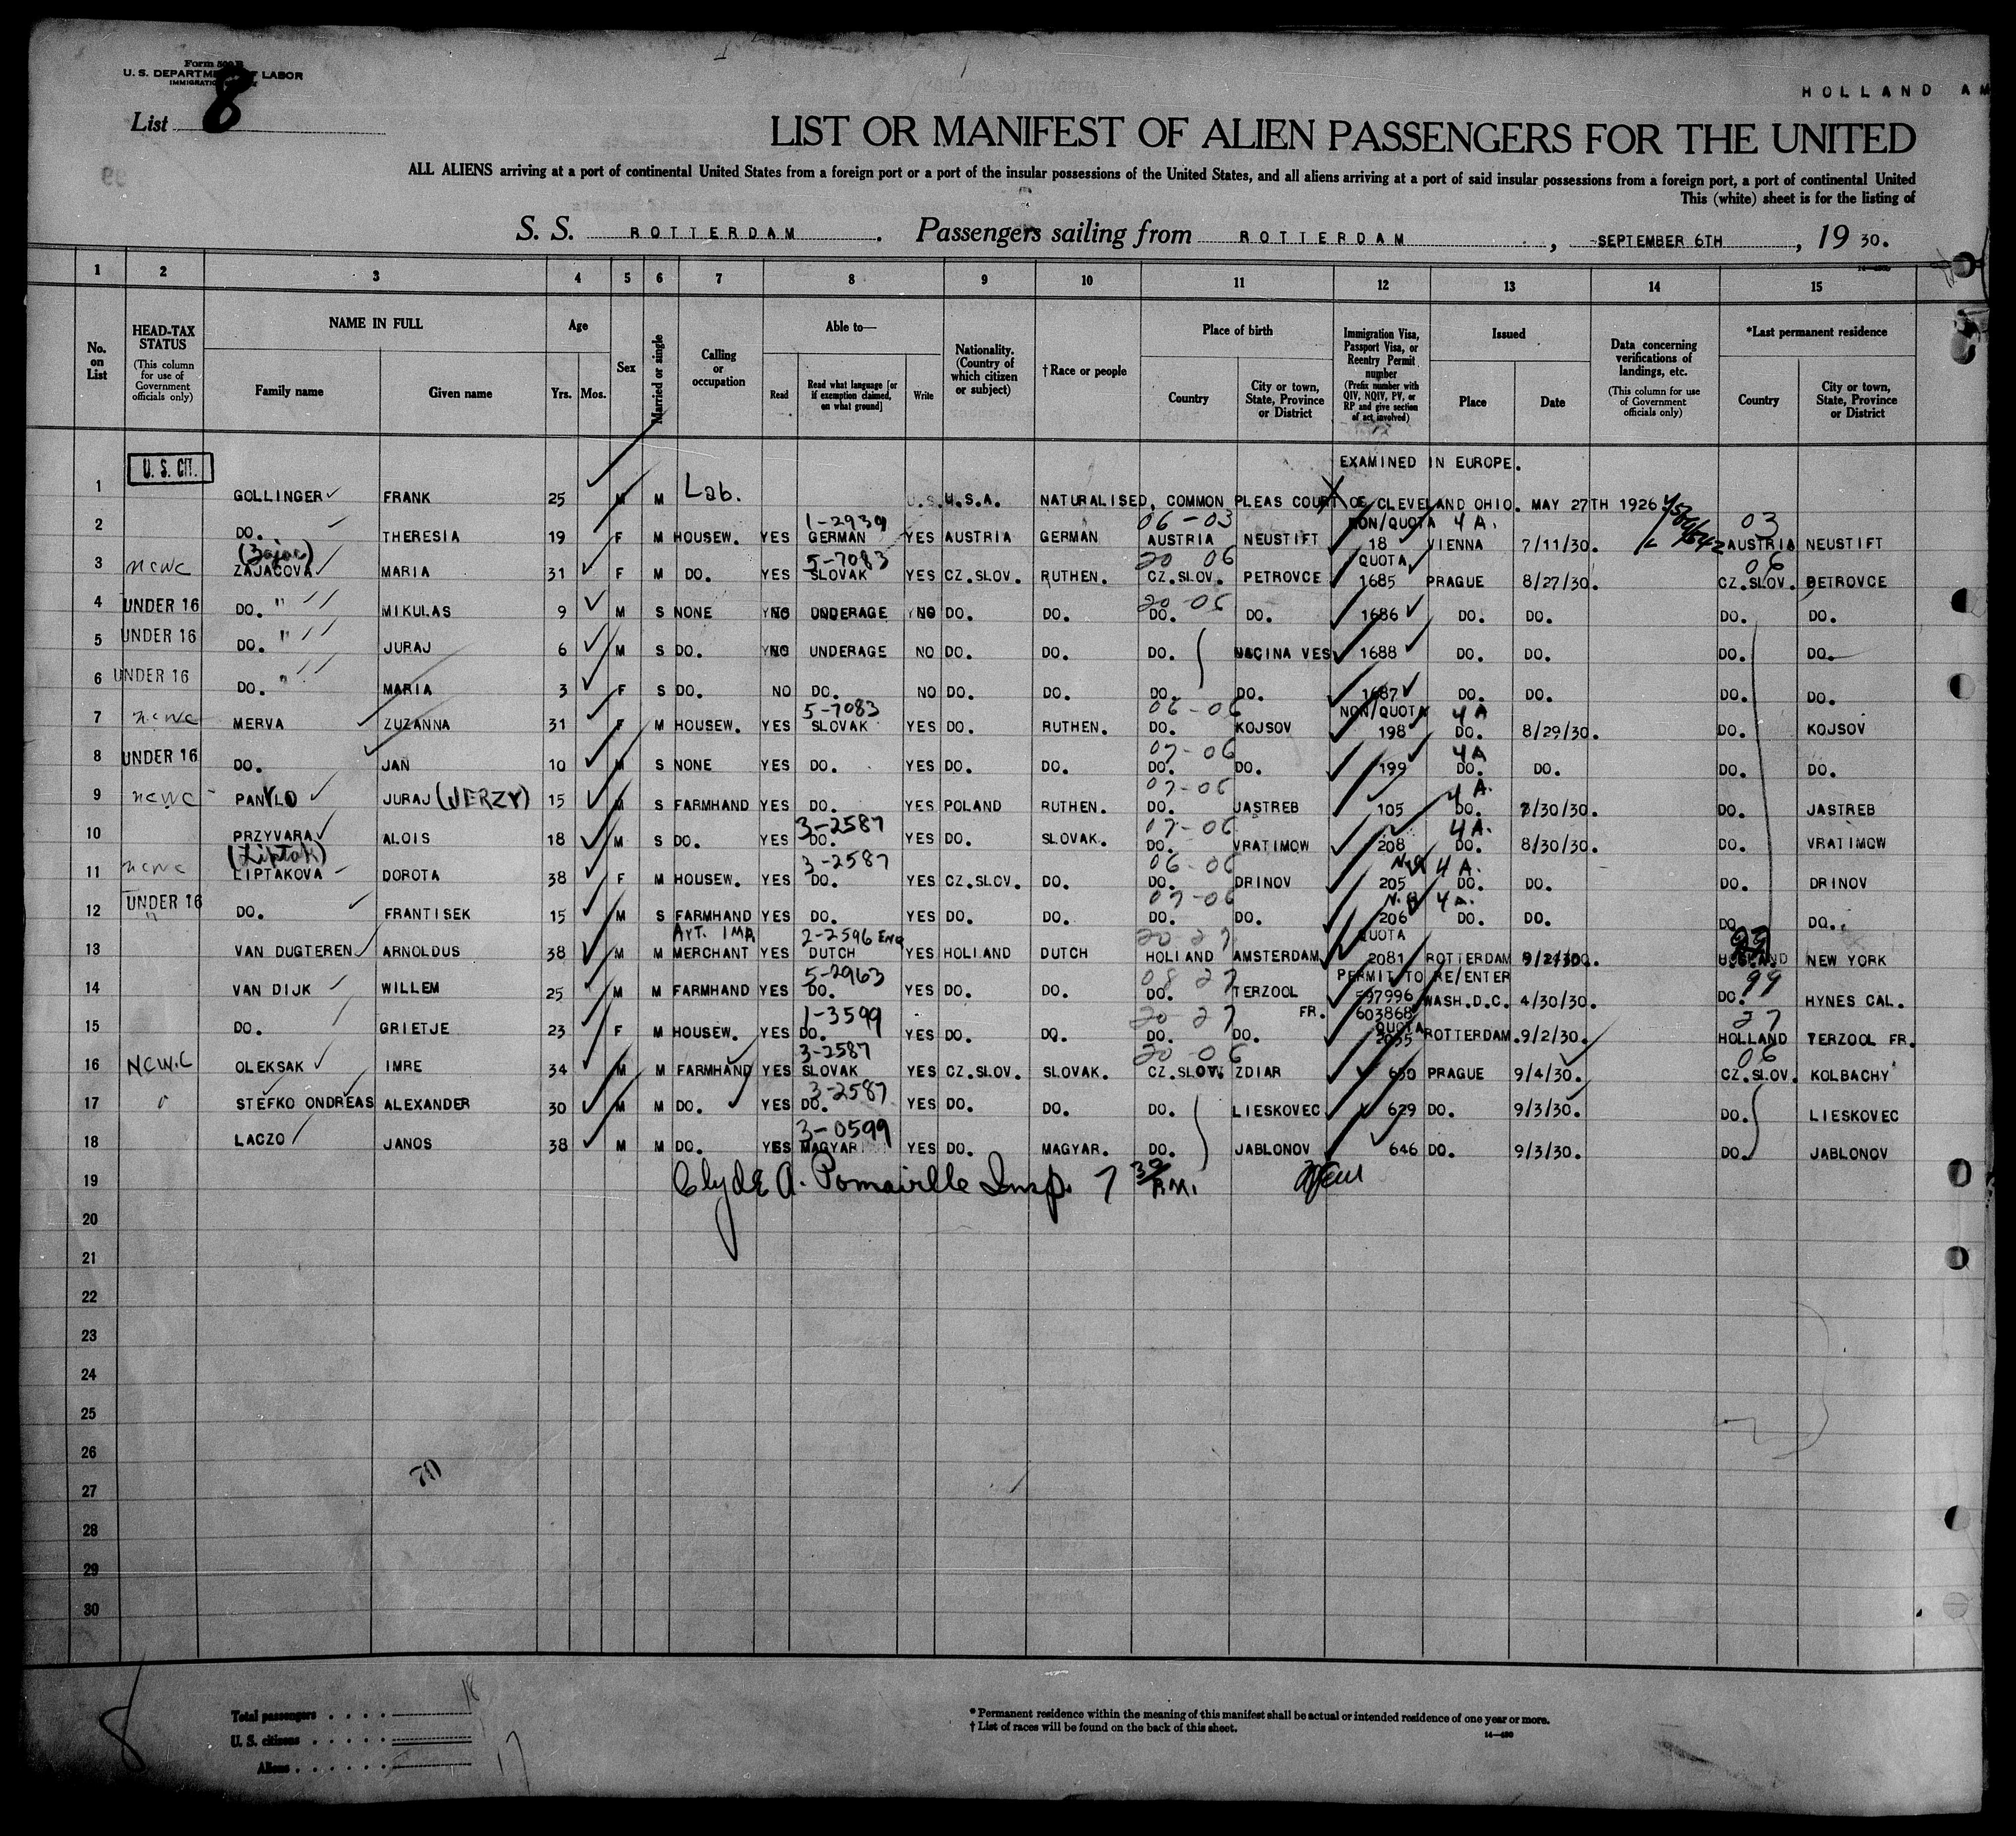 Form 500 B
U. S. DEPARTMENT OF LABOR
IMMIGRATION
HOLLAND AM
List 8
LIST OR MANIFEST OF ALIEN PASSENGERS FOR THE UNITED
ALL ALIENS arriving at a port of continental United States from a foreign port or a port of the insular possessions of the United States, and all aliens arriving at a port of said insular possessions from a foreign port, a port of continental United
This (white) sheet is for the listing of
S. S. ROTTERDAM. Passengers sailing from ROTTERDAM, SEPTEMBER 6TH, 19 30.
1 2 3 4 5 6 7 8 9 10 11 12 13 14 15
No. on List
HEAD-TAX STATUS (This column for use of Government officials only)
NAME IN FULL
Family name
Given name
Age
Yrs. Mos.
Sex
Married or single
Calling or occupation
Able to—
Read
Read what language [or if exemption claimed, on what ground]
Write
Nationality. (Country of which citizen or subject)
†Race or people
Place of birth
Country
City or town, State, Province or District
Immigration Visa, Passport Visa, or Reentry Permit number (Prefix number with QIV, NQIV, PV, or RP and give section of act involved)
Issued
Place
Date
Data concerning verifications of landings, etc. (This column for use of Government officials only)
*Last permanent residence
Country
City or town, State, Province or District
U. S. CIT.
EXAMINED IN EUROPE.
1 GOLLINGER FRANK 25 M M Lab. U.S.A. NATURALISED, COMMON PLEAS COURT OF CLEVELAND OHIO. MAY 27TH 1926
1-2939 06-03 NON/QUOTA 4 A. 03
2 DO. THERESIA 19 F M HOUSEW. YES GERMAN YES AUSTRIA GERMAN AUSTRIA NEUSTIFT 18 VIENNA 7/11/30. AUSTRIA NEUSTIFT
(Zajac) 5-7083 20 06 QUOTA 06
3 ncwc ZAJACOVA MARIA 31 F M DO. YES SLOVAK YES CZ.SLOV. RUTHEN. CZ.SLOV. PETROVCE 1685 PRAGUE 8/27/30. CZ.SLOV. PETROVCE
20-06
4 UNDER 16 DO. " MIKULAS 9 M S NONE NO UNDERAGE NO DO. DO. DO. DO. 1686 DO. DO. DO. DO.
5 UNDER 16 DO. " JURAJ 6 M S DO. NO UNDERAGE NO DO. DO. DO. NACINA VES 1688 DO. DO. DO. DO.
6 UNDER 16 DO. " MARIA 3 F S DO. NO DO. NO DO. DO. DO. DO. 1687 DO. DO. DO. DO.
5-7083 06-06 NON/QUOTA 4 A
7 ncwc MERVA ZUZANNA 31 F M HOUSEW. YES SLOVAK YES DO. RUTHEN. DO. KOJSOV 198 DO. 8/29/30. DO. KOJSOV
07-06 4A
8 UNDER 16 DO. JAN 10 M S NONE YES DO. YES DO. DO. DO. DO. 199 DO. DO. DO. DO.
07-06 4 A.
9 ncwc PANYLO JURAJ (JERZY) 15 M S FARMHAND YES DO. YES POLAND RUTHEN. DO. JASTREB 105 DO. 7/30/30. DO. JASTREB
3-2587 07-06 4A.
10 PRZYVARA ALOIS 18 M S DO. YES DO. YES DO. SLOVAK. DO. VRATIMOW 208 DO. 8/30/30. DO. VRATIMOW
(Liptak) 3-2587 06-06 N.Q 4 A.
11 ncwc LIPTAKOVA DOROTA 38 F M HOUSEW. YES DO. YES CZ.SLOV. DO. DO. DRINOV 205 DO. DO. DO. DRINOV
07-06 N.Q 4 A.
12 UNDER 16 " DO. FRANTISEK 15 M S FARMHAND YES DO. YES DO. DO. DO. DO. 206 DO. DO. DO. DO.
Art. Imp. 2-2596 Eng 20-27 QUOTA 99
13 VAN DUGTEREN ARNOLDUS 38 M M MERCHANT YES DUTCH YES HOLLAND DUTCH HOLLAND AMSTERDAM 2081 ROTTERDAM 9/2/30. NEW YORK
5-2963 08 27 PERMIT TO RE/ENTER 99
14 VAN DIJK WILLEM 25 M M FARMHAND YES DO. YES DO. DO. DO. TERZOOL FR. 597996 603868 WASH.D.C. 4/30/30. DO. HYNES CAL.
1-3599 20-27 QUOTA 27
15 DO. GRIETJE 23 F M HOUSEW. YES DO. YES DO. DO. DO. DO. 2035 ROTTERDAM. 9/2/30. HOLLAND TERZOOL FR.
3-2587 20-06 06
16 NCW.C OLEKSAK IMRE 34 M M FARMHAND YES SLOVAK YES CZ.SLOV. SLOVAK. CZ.SLOV. ZDIAR 650 PRAGUE 9/4/30. CZ.SLOV. KOLBACHY
3-2587
17 STEFKO ONDREAS ALEXANDER 30 M M DO. YES DO. YES DO. DO. DO. LIESKOVEC 629 DO. 9/3/30. DO. LIESKOVEC
3-0599
18 LACZO JANOS 38 M M DO. YES MAGYAR YES DO. MAGYAR. DO. JABLONOV 646 DO. 9/3/30. DO. JABLONOV
19 Clyde A. Pomaiville Insp. 7 30 P.M.
20
21
22
23
24
25
26
27
28
29
30
70
8
Total passengers . . . . 18
U. S. citizens . . . . .
Aliens . . . . . . 17
* Permanent residence within the meaning of this manifest shall be actual or intended residence of one year or more.
† List of races will be found on the back of this sheet.